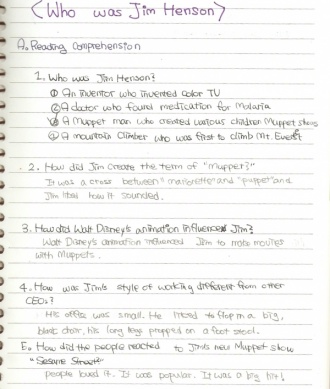 <Who was Jim Henson>
A. Reading Comprehension
1. Who was Jim Henson?
① An inventor who invented color TV
② A doctor who found medication for Malaria
③ A Muppet man who created various children Muppet shows
④ A mountain climber who was first to climb Mt. Everest
2. How did Jim create the term of "Muppet?"
It was a cross between "marionette" and "puppet" and
Jim liked how it sounded.
3. How did Walt Disney's animation influence Jim?
Walt Disney's animation influenced Jim to make movies
with Muppets.
4. How was Jim's style of working different from other
CEOs?
His office was small. He liked to flop in a big,
black chair, his long legs propped on a foot stool.
5. How did the people reacted to Jim's new Muppet show
"Sesame Street"
people loved it. It was popular. It was a big hit!